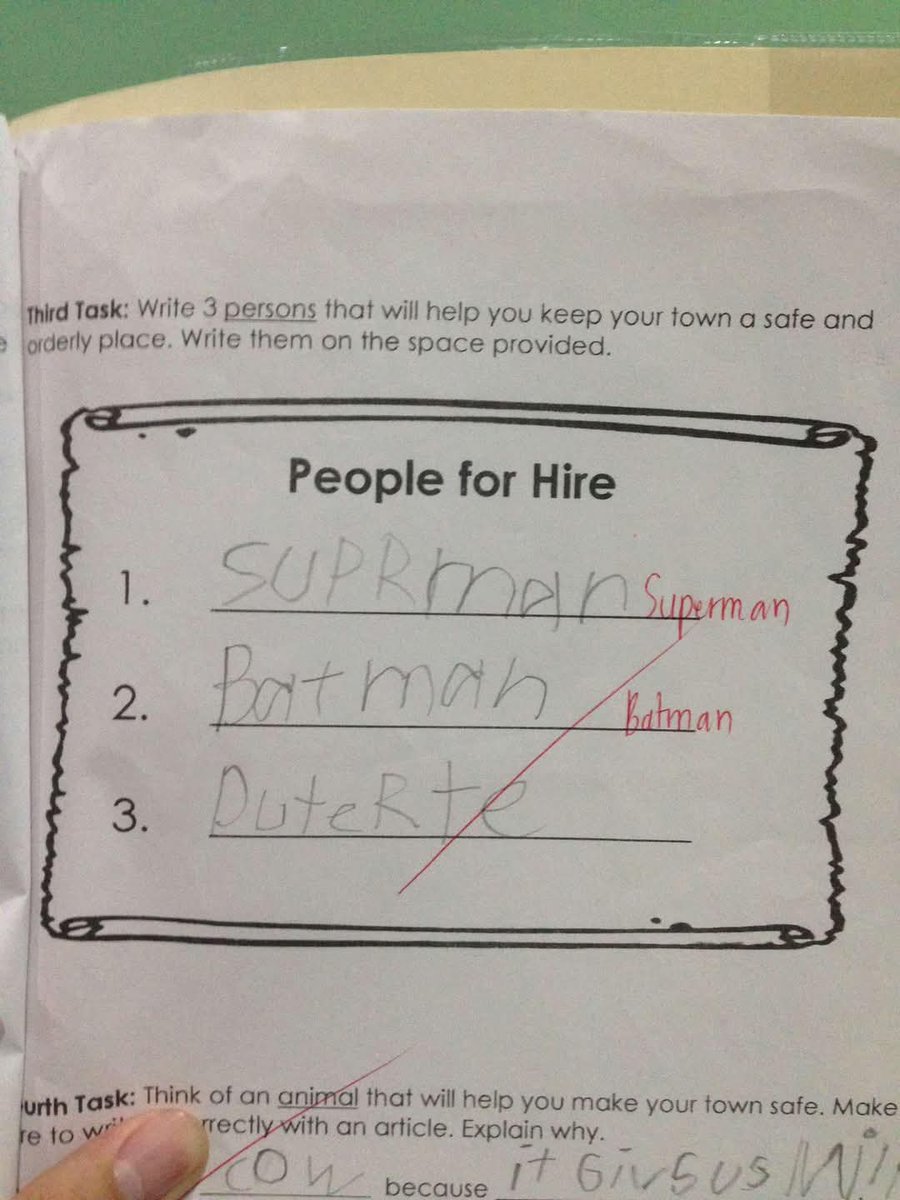 Third Task: Write 3 persons that will help you keep your town a safe and
orderly place. Write them on the space provided.
People for Hire
1. SUPRman Superman
2. Batman Batman
3. DuteRte
urth Task: Think of an animal that will help you make your town safe. Make
re to rrectly with an article. Explain why.
cow because it GivSus Mil